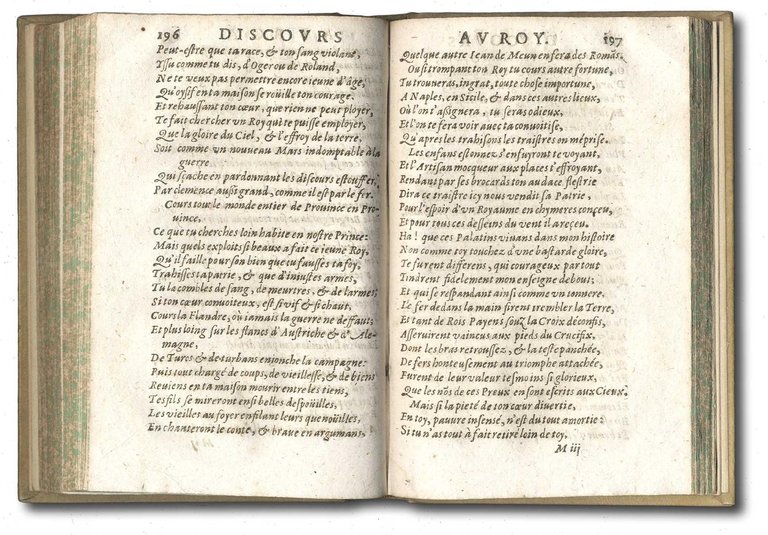 196 DISCOVRS
Peut-estre que ta race, & ton sang violant,
Yssu comme tu dis, d'Oger ou de Roland,
Ne te veux pas permettre encore ieune d'âge,
Qu'oysif en ta maison se roüille ton courage.
Et rehaussant ton cœur, que rien ne peut ployer,
Te fait chercher vn Roy qui te puisse employer,
Que la gloire du Ciel, & l'effroy de la terre,
Soit comme vn nouueau Mars indomptable à la
guerre
Qui sçache en pardonnant les discours estouffer,
Par clemence aussi grand, comme il est par le fer.
Cours tout le monde entier de Prouince en Pro-
uince,
Ce que tu cherches loin habite en nostre Prince:
Mais quels exploits si beaux a fait ce ieune Roy,
Qu'il faille pour son bien que tu fausses ta foy,
Trahisses ta patrie, & que d'iniustes armes,
Tu la combles de sang, de meurtres, & de larmes?
Si ton cœur conuoiteux, est si vif & si chaut,
Cours la Flandre, où iamais la guerre ne deffaut;
Et plus loing sur les flancs d'Austriche & d'Ale-
magne,
De Turcs & de turbans enionche la campagne:
Puis tout chargé de coups, de vieillesse, & de biens
Reuiens en ta maison mourir entre les tiens,
Tes fils se mireront en si belles despoüilles,
Les vieilles au foyer enfilant leurs quenoüilles,
En chanteront le conte, & braue en argumans,
AV ROY. 197
Quelque autre Iean de Meun en fera des Romãs.
Ou si trompant ton Roy tu cours autre fortune,
Tu trouueras, ingrat, toute chose importune,
A Naples, en Sicile, & dans ces autres lieux,
Où l'on t'assignera, tu seras odieux,
Et l'on te fera voir auec ta conuoitise,
Qu'apres les trahisons les traistres on méprise.
Les enfans estonnez s'enfuyront te voyant,
Et l'Artisan mocqueur aux places t'effroyant,
Rendant par ses brocards ton audace flestrie
Dira ce traistre icy nous vendit sa Patrie,
Pour l'espoir d'vn Royaume en chymeres conçeu,
Et pour tous ces desseins du vent il a reçeu.
Ha! que ces Palatins viuans dans mon histoire
Non comme toy touchez d'vne bastarde gloire,
Te furent differens, qui courageux par tout
Tindrent fidelement mon enseigne debout;
Et qui se respandant ainsi comme vn tonnere,
Le fer dedans la main firent trembler la Terre,
Et tant de Rois Payens souz la Croix déconfis,
Asseruirent vaincus aux pieds du Crucifix,
Dont les bras retroussez, & la teste panchée,
De fers honteusement au triomphe attachée,
Furent de leur valeur tesmoins si glorieux,
Que les nõs de ces Preux en sont escrits aux Cieux.
Mais si la pieté de ton cœur diuertie,
En toy, pauure insensé, n'est du tout amortie:
Si tu n'as tout à fait retiré loin de toy,
M iij